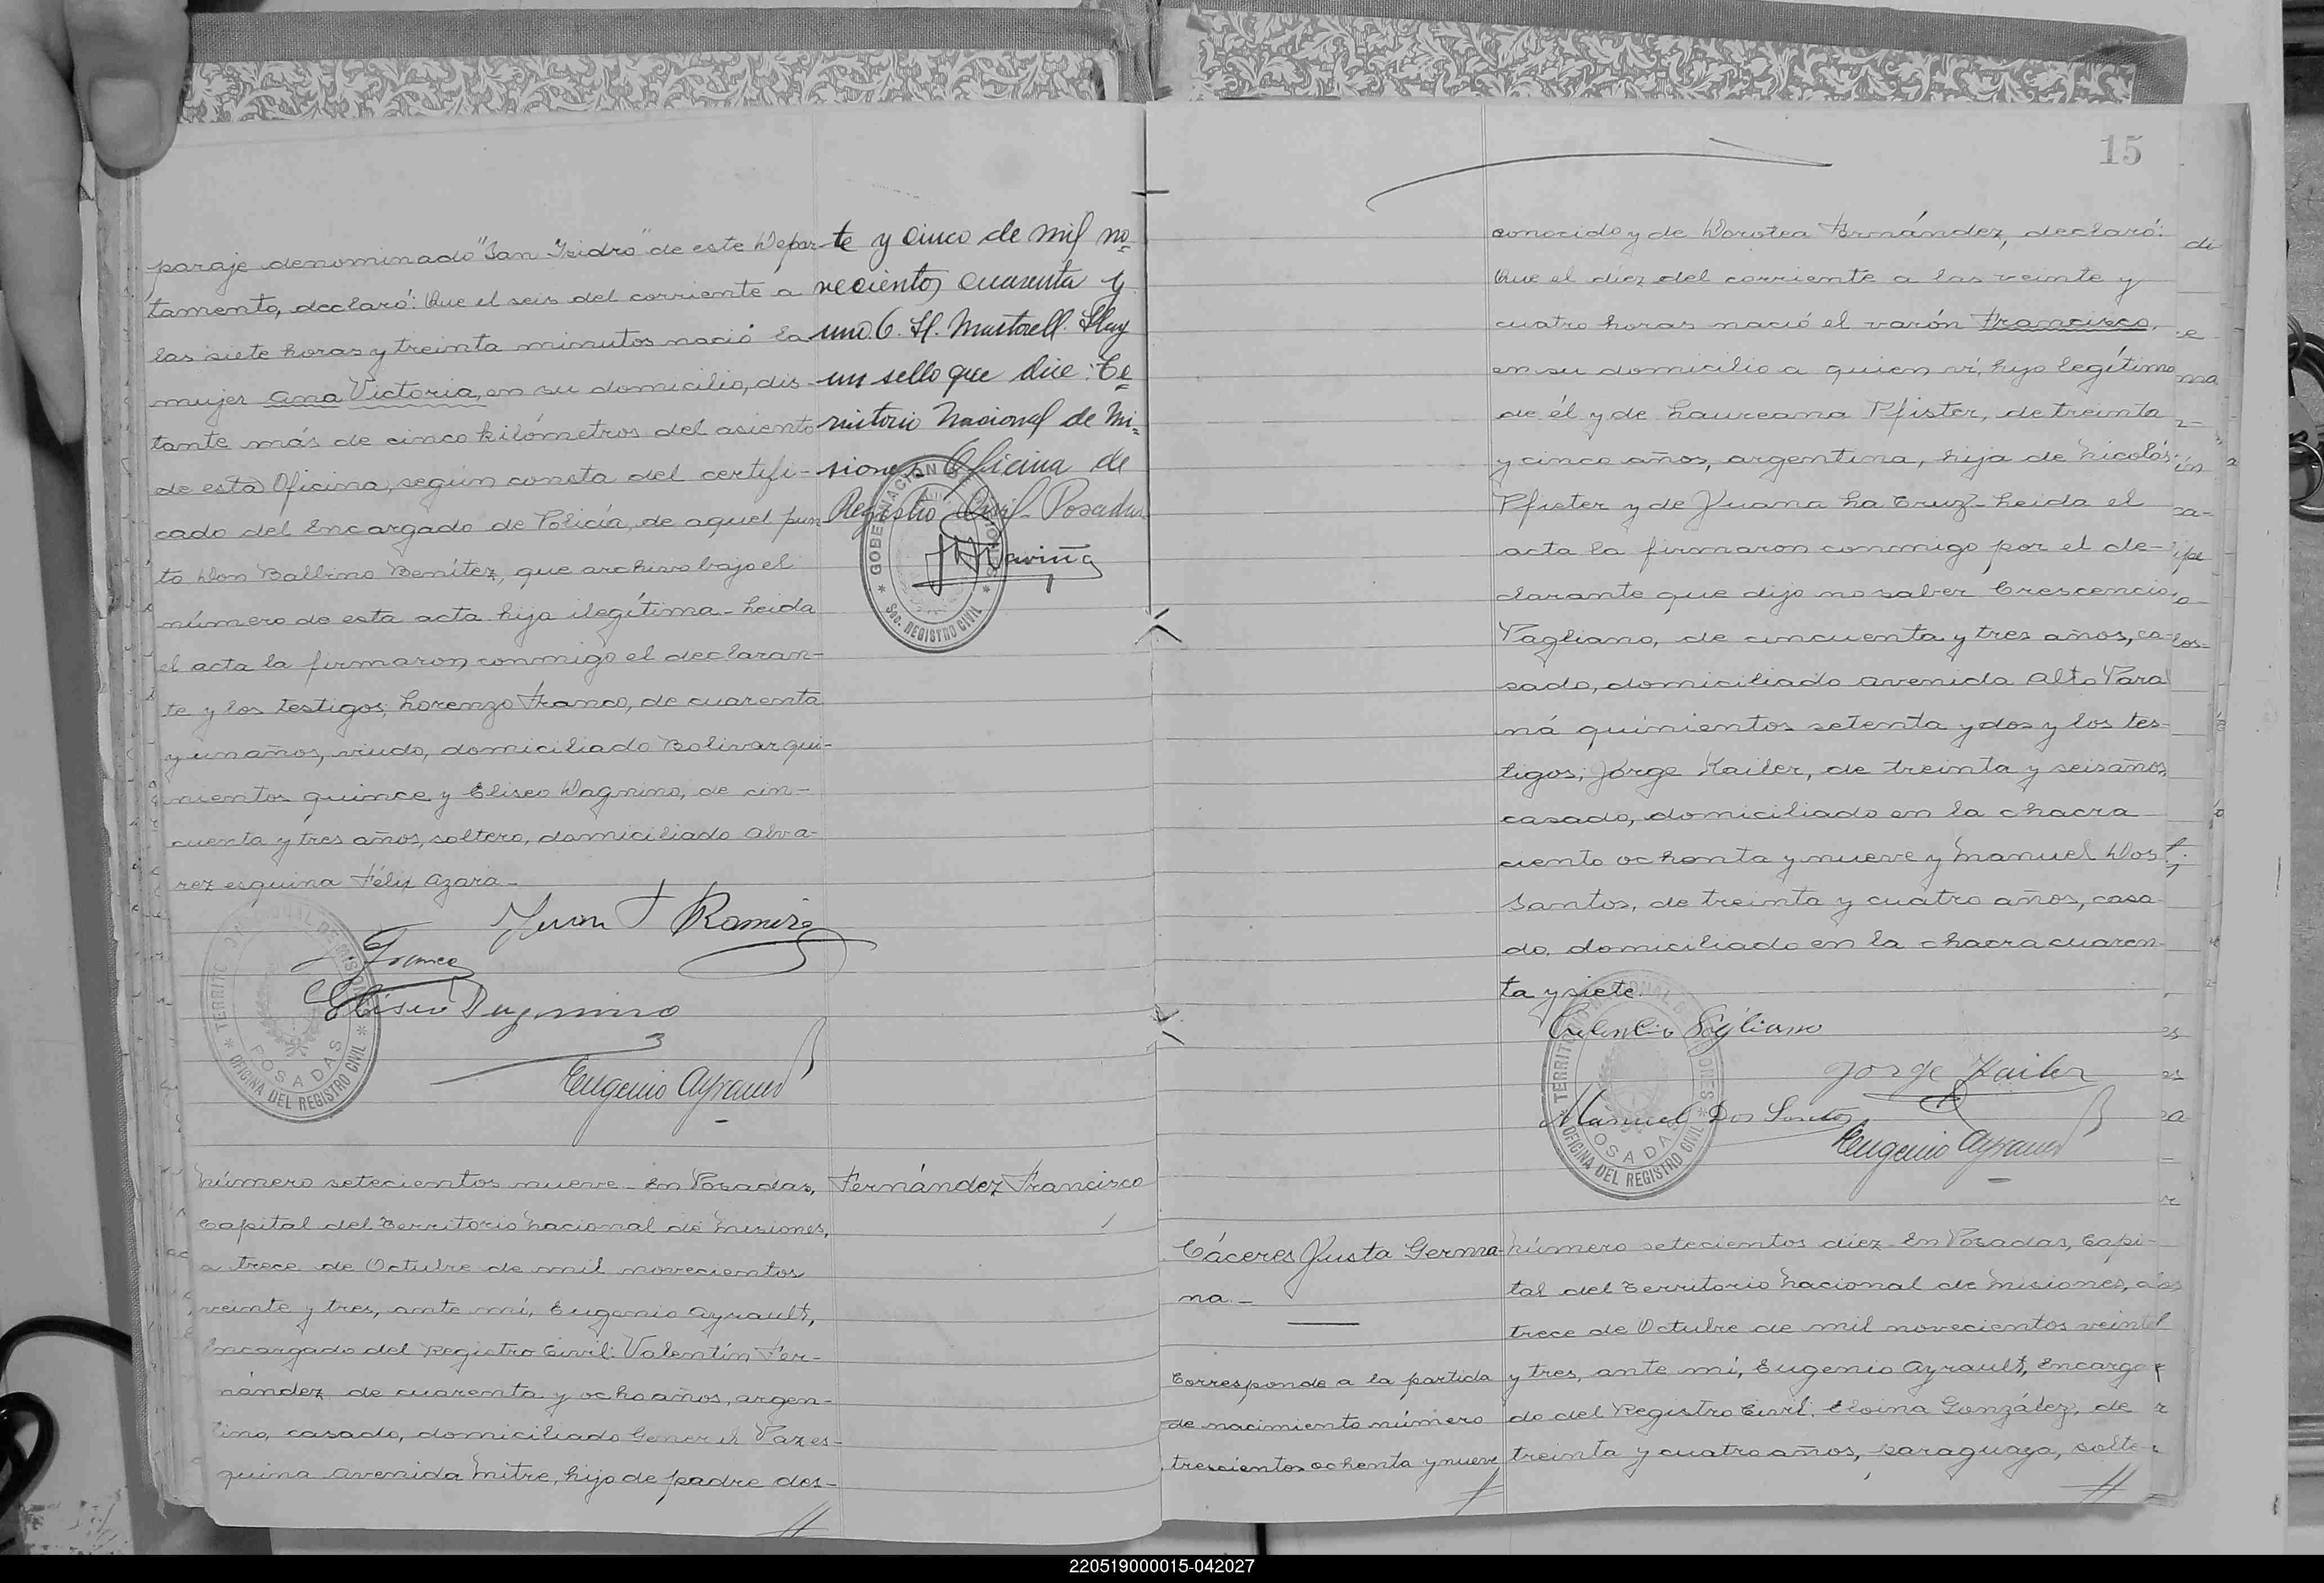 paraje denominado "San Isidro" de este Depar-
tamento, declaró: Que el seis del corriente a
las siete horas y treinta minutos nació la
mujer Ana Victoria, en su domicilio, dis-
tante más de cinco kilómetros del asiento
de esta Oficina, según consta del certifi-
cado del Encargado de Policía, de aquel pun
to Don Balbino Benítez, que archivo bajo el
número de esta acta hija ilegítima - Leida
el acta la firmaron conmigo el declaran-
te y los testigos; Lorenzo Franco, de cuarenta
y un años, viudo, domiciliado Bolivar qui-
nientos quince y Eliseo Dagnino, de cin-
cuenta y tres años, soltero, domiciliado Alva-
rez esquina Félix Azara -
Juan J Ramirez
Franco
Eliseo Dagnino
Eugenio Ayrault
TERRITORIO NACIONAL DE MISIONES
POSADAS
OFICINA DEL REGISTRO CIVIL
te y cinco de mil no-
vecientos cuarenta y
uno. G. H. Martorell. Hay
un sello que dice: Te-
rritorio Nacional de Mi-
siones Oficina de
Registro Civil - Posadas
GOBERNACION DE MISIONES
Sec. REGISTRO CIVIL
Número setecientos nueve - En Posadas,
Capital del Territorio Nacional de Misiones,
a trece de Octubre de mil novecientos
veinte y tres, ante mí, Eugenio Ayrault,
Encargado del Registro Civil: Valentín Fer-
nández de cuarenta y ocho años, argen-
tino, casado, domiciliado General Paz es-
quina Avenida Mitre, hijo de padre des-
Fernández Francisco
15
conocido y de Dorotea Fernández, declaró:
Que el diez del corriente a las veinte y
cuatro horas nació el varón Francisco,
en su domicilio a quien ví, hijo legítimo
de él y de Laureana Pfister, de treinta
y cinco años, argentina, hija de Nicolás
Pfister y de Juana La Cruz - Leida el
acta la firmaron conmigo por el de-
clarante que dijo no saber Crescencio
Pagliano, de cincuenta y tres años, ca-
sado, domiciliado Avenida Alto Para
ná quinientos setenta y dos y los tes-
tigos; Jorge Kailer, de treinta y seis años,
casado, domiciliado en la chacra
ciento ochenta y nueve y Manuel Dos
Santos, de treinta y cuatro años, casa
do, domiciliado en la chacra cuaren-
ta y siete.
Pagliano
Jorge Kailer
Manuel Dos Santos
Eugenio Ayrault
TERRITORIO NACIONAL DE MISIONES
POSADAS
OFICINA DEL REGISTRO CIVIL
Cáceres Justa Germa-
na. -
Corresponde a la partida
de nacimiento número
trescientos ochenta y nueve
Número setecientos diez - En Posadas, Capi-
tal del Territorio Nacional de Misiones, a
trece de Octubre de mil novecientos veinte
y tres, ante mí, Eugenio Ayrault, Encarga
do del Registro Civil: Eloina González, de
treinta y cuatro años, paraguaya, solte-
220519000015-042027